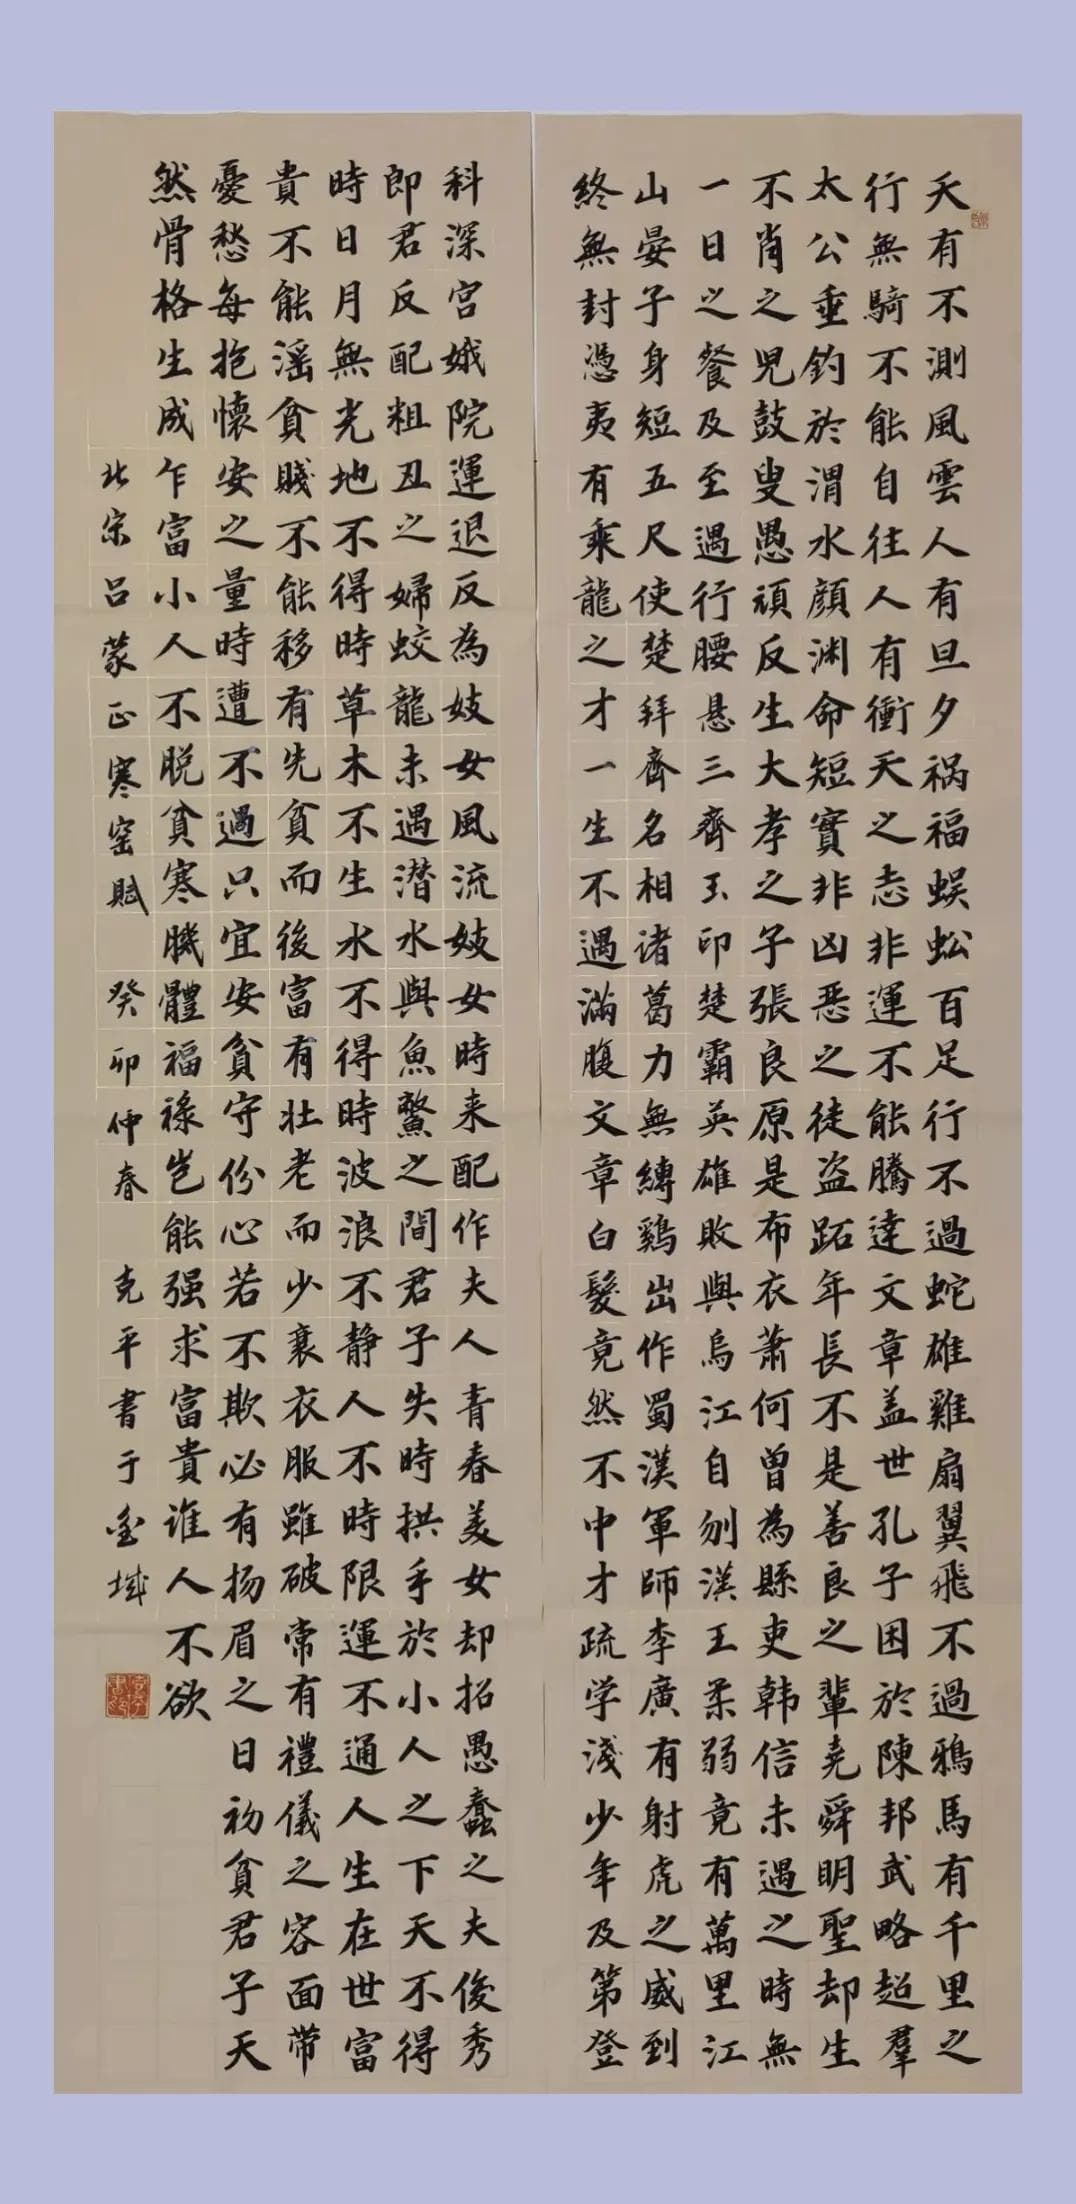 天有不測風雲人有旦夕祸福蜈蚣百足行不過蛇雄雞扇翼飛不過鴉馬有千里之
行無騎不能自往人有衝天之志非運不能騰達文章盖世孔子困於陳邦武略超羣
太公垂釣於渭水顏渊命短實非凶恶之徒盗跖年長不是善良之輩尭舜明聖却生
不肖之児鼓叟愚頑反生大孝之子張良原是布衣萧何曽為縣吏韩信未遇之時無
一日之餐及至遇行腰悬三齊玉印楚霸英雄敗與烏江自刎漢王柔弱竟有萬里江
山晏子身短五尺使楚拜齊名相诸葛力無縛鷄出作蜀漢軍師李廣有射虎之威到
終無封憑夷有乘龍之才一生不遇滿腹文章白髮竟然不中才疏学淺少年及第登
科深宫娥院運退反為妓女風流妓女時来配作夫人青春美女却招愚蠢之夫俊秀
郎君反配粗丑之婦蛟龍未遇潜水與魚鱉之間君子失時拱手於小人之下天不得
時日月無光地不得時草木不生水不得時波浪不静人不時限運不通人生在世富
貴不能滛貧賤不能移有先貧而後富有壮老而少衰衣服雖破常有禮儀之容面帶
憂愁每抱懷安之量時遭不遇只宜安貧守份心若不欺必有扬眉之日初貧君子天
然骨格生成乍富小人不脱貧寒體福禄岂能强求富貴谁人不欲
北宗吕蒙正寒窑賦 癸卯仲春 克平書于金城